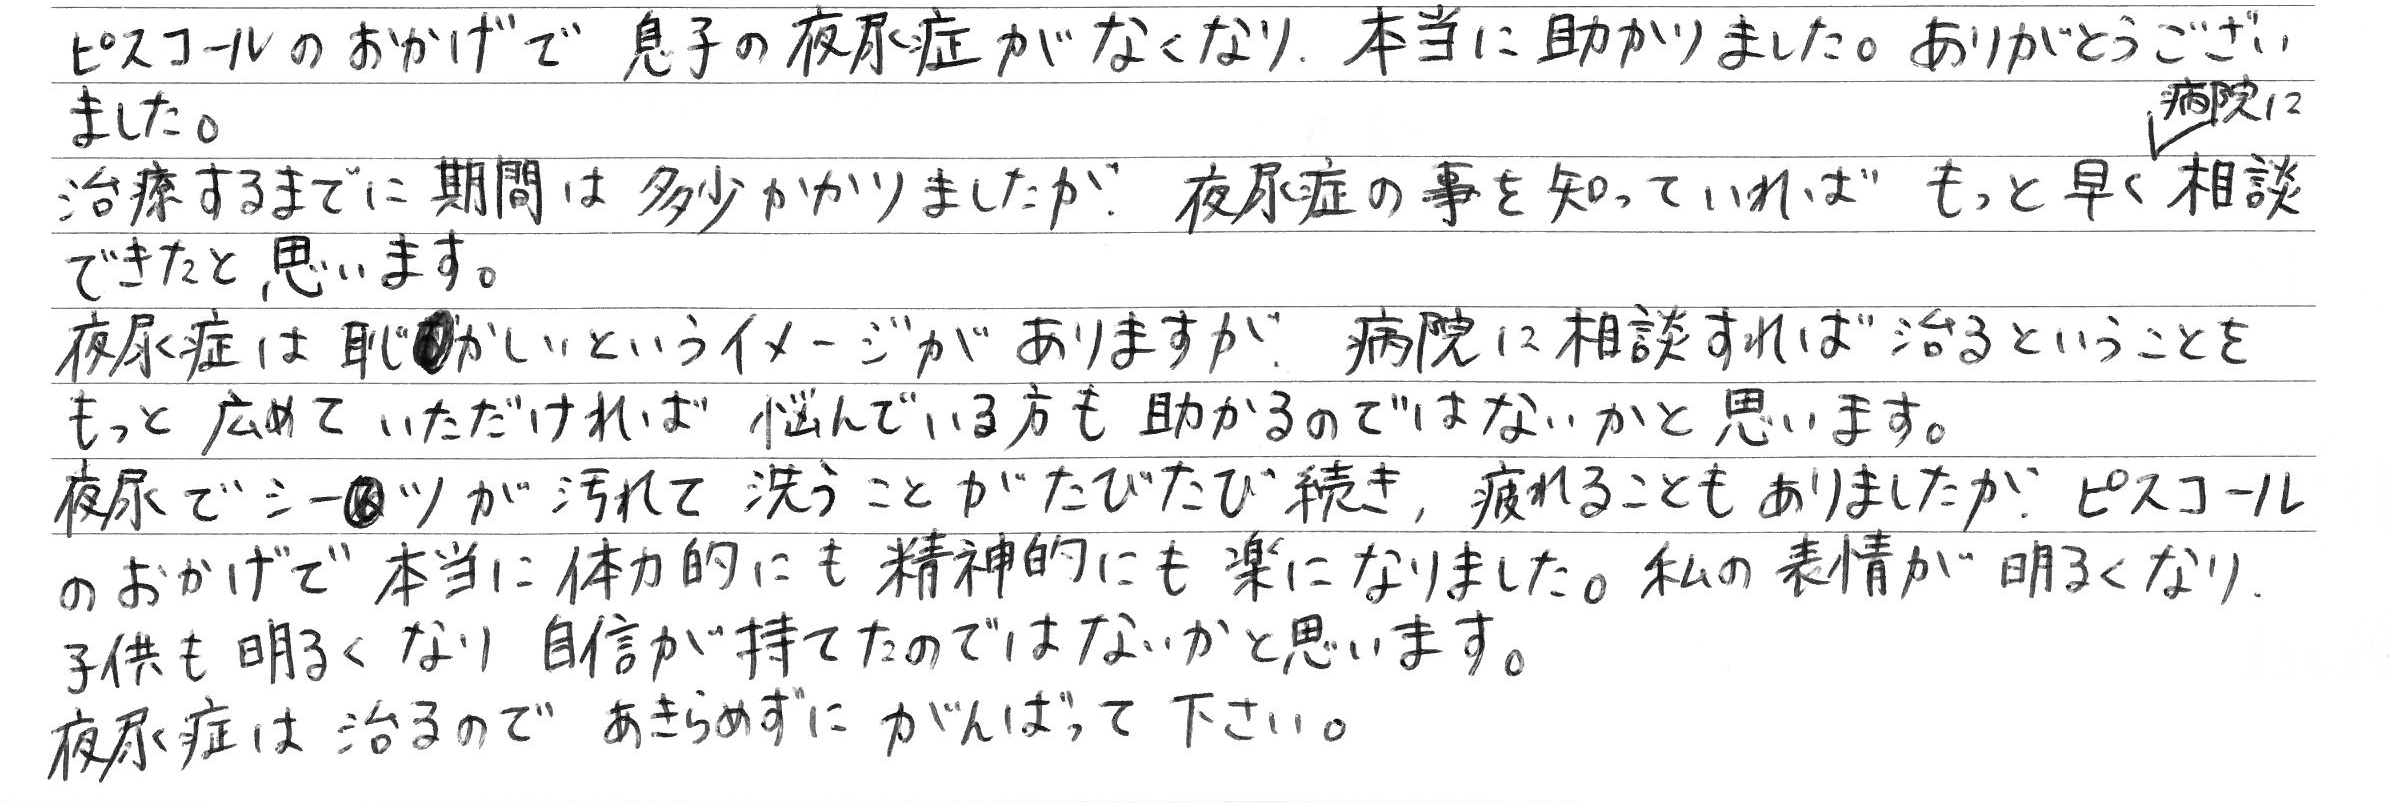 ピスコールのおかげで 息子の夜尿症がなくなり、本当に助かりました。ありがとうござい
ました。
病院に
治療するまでに期間は多少かかりましたが、夜尿症の事を知っていれば もっと早く相談
できたと思います。
夜尿症は恥かしいというイメージがありますが、病院に相談すれば治るということを
もっと広めていただければ 悩んでいる方も助かるのではないかと思います。
夜尿でシーツが汚れて洗うことがたびたび続き、疲れることもありましたが、ピスコール
のおかげで本当に体力的にも精神的にも楽になりました。私の表情が明るくなり、
子供も明るくなり 自信が持てたのではないかと思います。
夜尿症は治るので あきらめずに がんばって下さい。